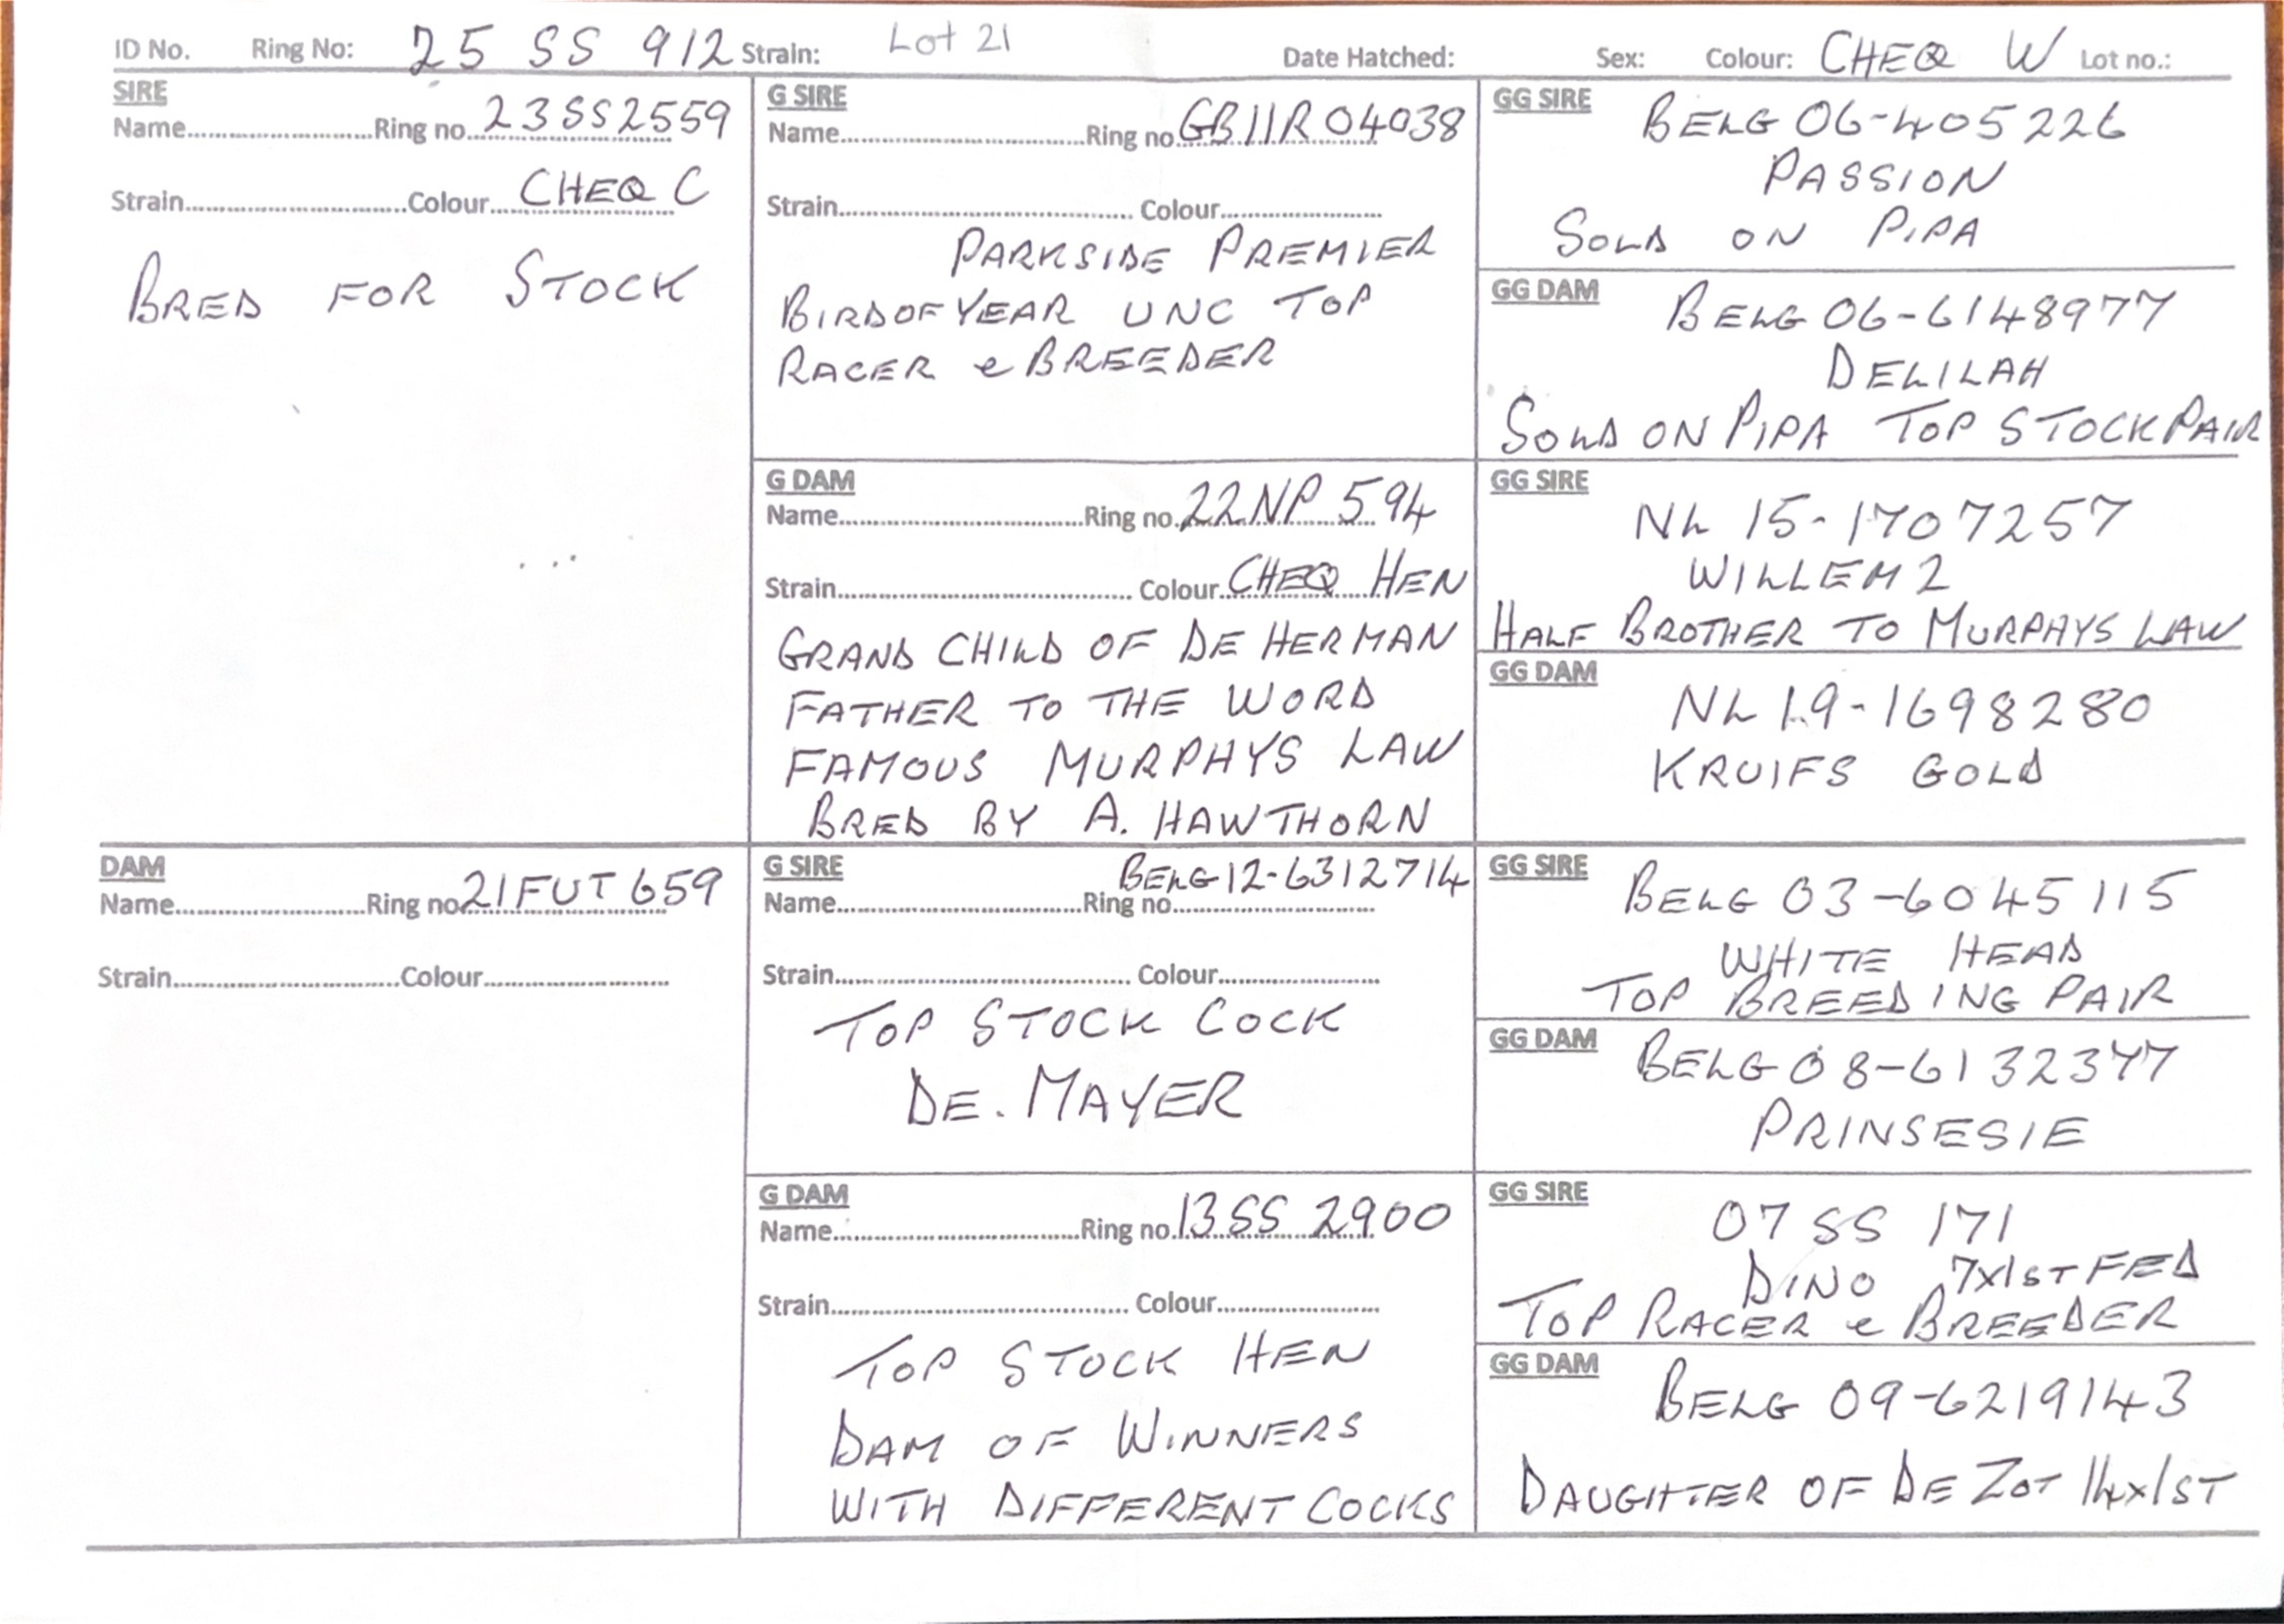 ID No. Ring No: 25 SS 912 Strain: Lot 21 Date Hatched: Sex: Colour: CHEQ W Lot no.:
SIRE
Name Ring no. 23SS2559
Strain Colour CHEQ C
BRED FOR STOCK
G SIRE
Name Ring no. GB11R04038
Strain Colour
PARKSIDE PREMIER
BIRDOFYEAR UNC TOP
RACER e BREEDER
GG SIRE
BELG 06-405226
PASSION
SOLD ON PIPA
GG DAM
BELG 06-6148977
DELILAH
SOLD ON PIPA TOP STOCK PAIR
G DAM
Name Ring no. 22NP 594
Strain Colour CHEQ HEN
GRAND CHILD OF DE HERMAN
FATHER TO THE WORD
FAMOUS MURPHYS LAW
BRED BY A. HAWTHORN
GG SIRE
NL 15-1707257
WILLEM 2
HALF BROTHER TO MURPHYS LAW
GG DAM
NL 19-1698280
KRUIFS GOLD
DAM
Name Ring no. 21FUT659
Strain Colour
G SIRE
BELG12-6312714
Name Ring no
Strain Colour
TOP STOCK COCK
DE. MAYER
GG SIRE
BELG 03-6045115
WHITE HEAD
TOP BREEDING PAIR
GG DAM
BELG 08-6132377
PRINSESIE
G DAM
Name Ring no. 13SS 2900
Strain Colour
TOP STOCK HEN
DAM OF WINNERS
WITH DIFFERENT COCKS
GG SIRE
07 SS 171
DINO 7x1ST FED
TOP RACER e BREEDER
GG DAM
BELG 09-6219143
DAUGHTER OF DE ZOT 14x1ST